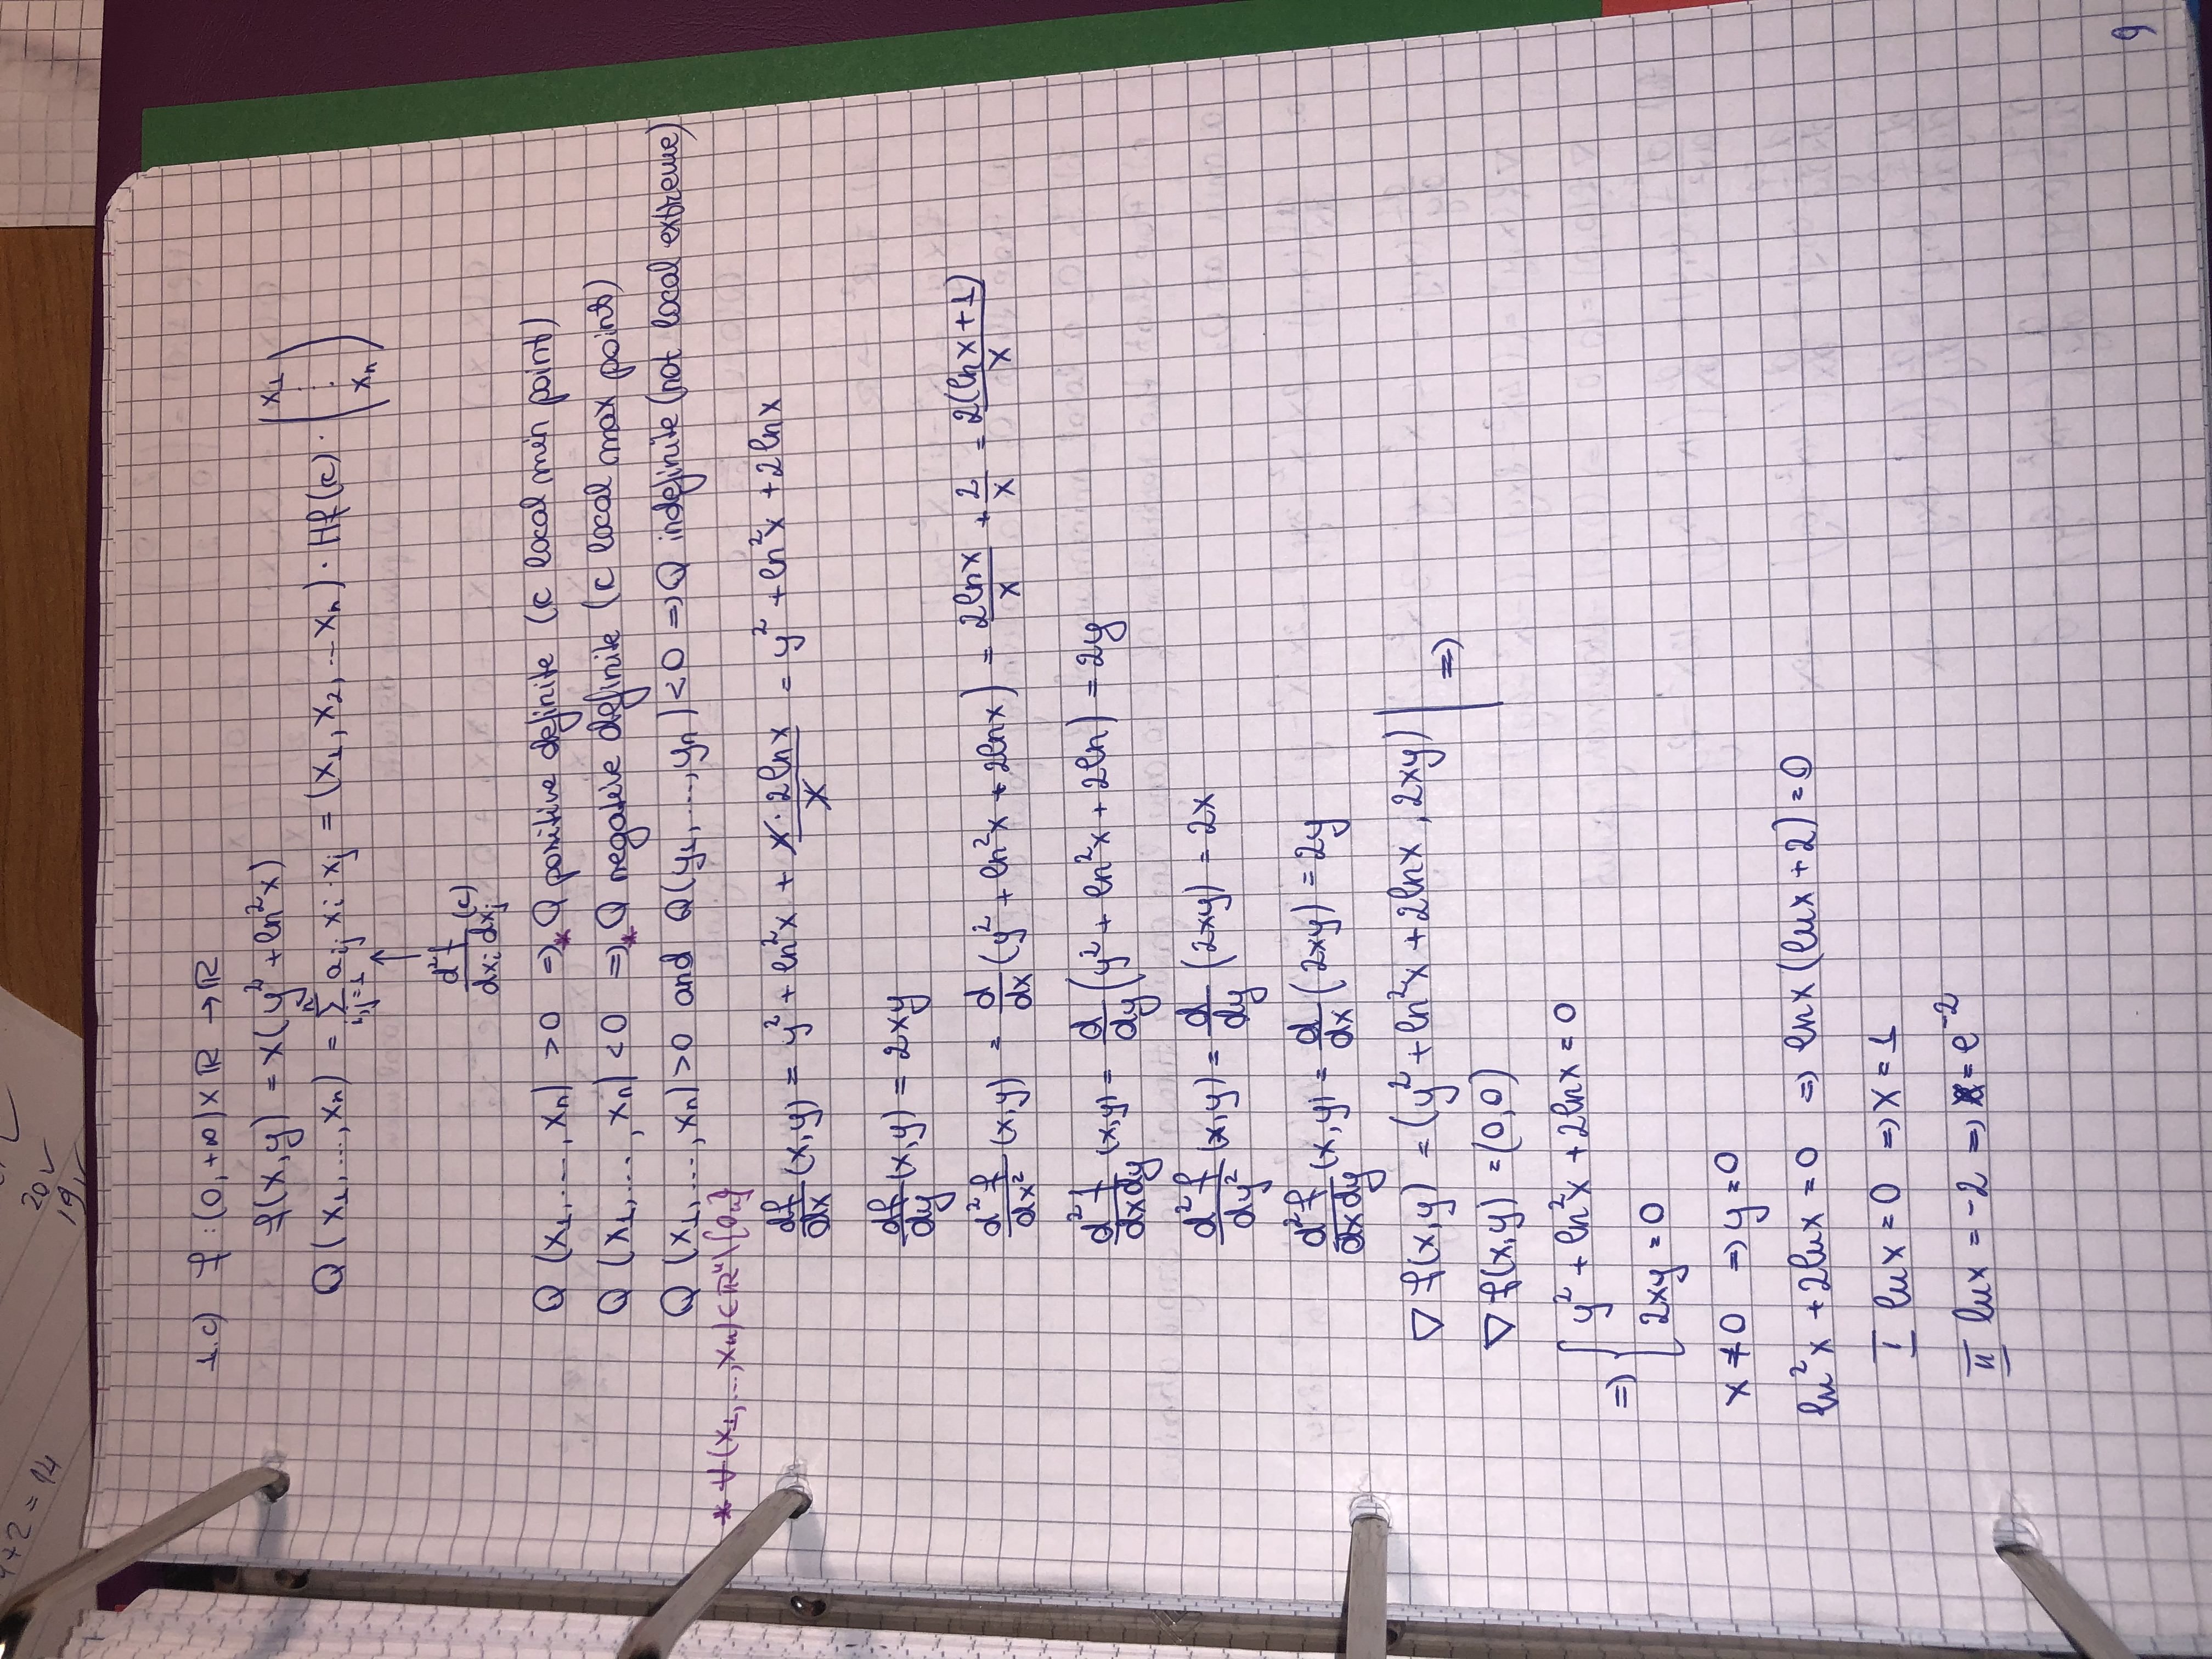 4+2=14
20✓
19✓
1.c) f:(0,+∞)×ℝ →ℝ
f(x,y) = x(y²+ln²x)
Q(x₁,...,xₙ) = Σⁿᵢ,ⱼ₌₁ aᵢⱼ xᵢ·xⱼ = (x₁,x₂,...xₙ)·Hf(c)·(x₁ ⋮ xₙ)
↑
d²f/dxᵢdxⱼ (c)
Q(x₁,...,xₙ) >0 ⇒* Q positive definite (c local min point)
Q(x₁,...,xₙ) <0 ⇒* Q negative definite (c local max point)
Q(x₁,...,xₙ)>0 and Q(y₁,...,yₙ)<0 ⇒Q indefinite (not local extreme)
* ∀(x₁,...,xₙ)∈ℝⁿ\{0ₙ}
df/dx (x,y) = y²+ln²x + x·2lnx/x = y²+ln²x+2lnx
df/dy (x,y) = 2xy
d²f/dx² (x,y) = d/dx (y²+ln²x+2lnx) = 2lnx/x + 2/x = 2(lnx+1)/x
d²f/dxdy (x,y) = d/dy (y²+ln²x+2ln) = 2y
d²f/dy² (x,y) = d/dy (2xy) = 2x
d²f/dxdy (x,y) = d/dx (2xy) = 2y
∇f(x,y) = (y²+ln²x+2lnx, 2xy) | ⇒
∇f(x,y) = (0,0)
⇒ { y²+ln²x+2lnx=0
2xy=0
x≠0 ⇒ y=0
ln²x+2lnx=0 ⇒ lnx(lnx+2)=0
I lnx=0 ⇒ x=1
II lnx=-2 ⇒ x=e⁻²
9